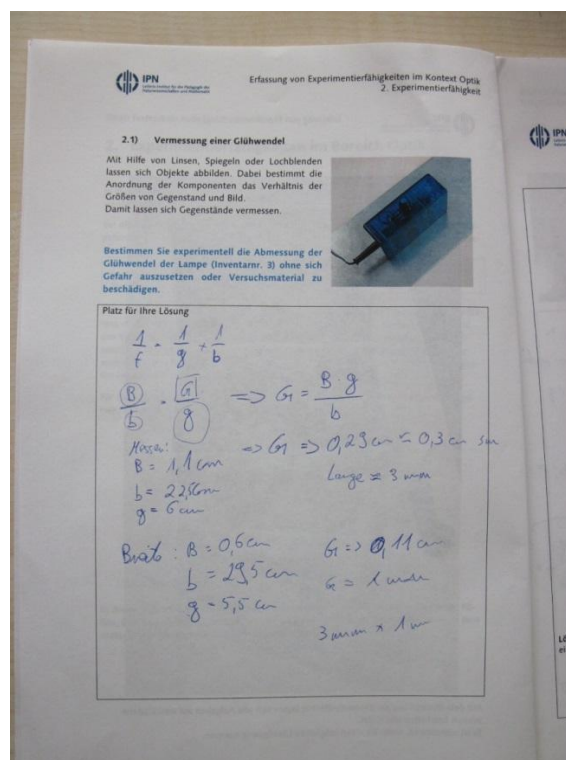 IPN
Erfassung von Experimentierfähigkeiten im Kontext Optik
2. Experimentierfähigkeit
IPN
2.1) Vermessung einer Glühwendel
Mit Hilfe von Linsen, Spiegeln oder Lochblenden
lassen sich Objekte abbilden. Dabei bestimmt die
Anordnung der Komponenten das Verhältnis der
Größen von Gegenstand und Bild.
Damit lassen sich Gegenstände vermessen.
Bestimmen Sie experimentell die Abmessung der
Glühwendel der Lampe (Inventarnr. 3) ohne sich
Gefahr auszusetzen oder Versuchsmaterial zu
beschädigen.
Platz für Ihre Lösung
1/f = 1/g + 1/b
B/b = G/g => G = B · g / b
Messen: => G => 0,29 cm ≈ 0,3 cm
B = 1,1 cm Länge ≈ 3 mm
b = 22,5 cm
g = 6 cm
Breite: B = 0,6 cm G => 0,11 cm
b = 29,5 cm G = 1 mm
g = 5,5 cm
3 mm x 1 mm